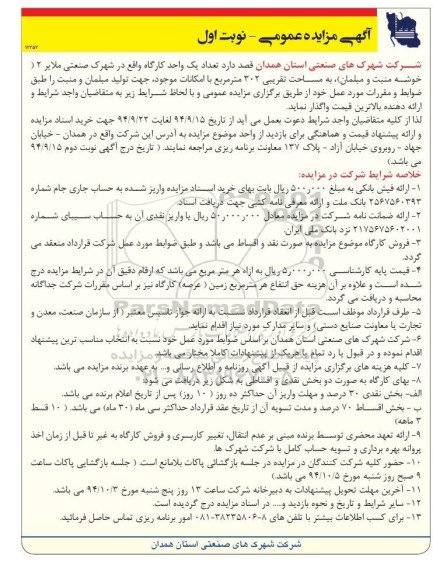 آگهی مزایده عمومی - نوبت اول
شرکت شهرک های صنعتی استان همدان قصد دارد تعداد یک واحد کارگاه واقع در شهرک صنعتی ملایر ۲ (
خوشه منبت و مبلمان)، به مساحت تقریبی ۳۰۲ مترمربع با امکانات موجود، جهت تولید مبلمان و منبت را طبق
ضوابط و مقررات مورد عمل خود از طریق برگزاری مزایده عمومی و با لحاظ شرایط زیر به متقاضیان واجد شرایط و
ارائه دهنده بالاترین قیمت واگذار نماید.
لذا از کلیه متقاضیان واجد شرایط دعوت بعمل می آید از تاریخ ۹۴/۹/۱۵ لغایت ۹۴/۹/۲۲ جهت خرید اسناد مزایده
و ارائه پیشنهاد قیمت و هماهنگی برای بازدید از واحد موضوع مزایده به آدرس این شرکت واقع در همدان - خیابان
جهاد - روبروی خیابان آزاد - پلاک ۱۳۷ معاونت برنامه ریزی مراجعه نمایند. ( تاریخ درج آگهی نوبت دوم ۹۴/۹/۱۵
می باشد)
خلاصه شرایط شرکت در مزایده:
۱- ارائه فیش بانکی به مبلغ ۵۰۰,۰۰۰ ریال بابت بهای خرید اسناد مزایده واریز شده به حساب جاری جام شماره
۲۵۶۷۵۶۰۳۹۳ بانک ملت و ارائه معرفی نامه کتبی جهت دریافت اسناد.
۲- ارائه ضمانت نامه شرکت در مزایده معادل ۵۰,۰۰۰,۰۰۰ ریال یا واریز نقدی آن به حساب سیبای شماره
۲۱۷۵۶۷۵۶۰۲۰۰۱ نزد بانک ملی ایران.
۳- فروش کارگاه موضوع مزایده به صورت نقد و اقساط می باشد و طبق ضوابط مورد عمل شرکت قرارداد منعقد می
گردد.
۴- قیمت پایه کارشناسی ۵,۰۰۰,۰۰۰ ریال به ازاء هر متر مربع می باشد که ارقام دقیق آن در شرایط مزایده درج
شده است و علاوه بر آن هزینه حق انتفاع هر مترمربع زمین ( عرصه) کارگاه نیز بر اساس مقررات شرکت جداگانه
محاسبه و دریافت می گردد.
۵- طرف قرارداد موظف است قبل از انعقاد قرارداد نسبت به ارائه جواز تاسیس معتبر ( از سازمان صنعت، معدن و
تجارت یا معاونت صنایع دستی) و سایر مدارک مورد نیاز اقدام نماید.
۶- شرکت شهرک های صنعتی استان همدان بر اساس ضوابط مورد عمل خود نسبت به انتخاب مناسب ترین پیشنهاد
اقدام نموده و در قبول یا رد تمام یا هریک از پیشنهادات کاملا مختار می باشد.
۷- کلیه هزینه های برگزاری مزایده از قبیل آگهی روزنامه و اطلاع رسانی و... به عهده برنده مزایده می باشد.
۸- بهای کارگاه به صورت دو بخش نقدی و اقساطی به شکل زیر دریافت می شود:
الف- بخش نقدی ۳۰ درصد و مهلت واریز آن حداکثر ده روز ( ۱۰ روز) پس از تاریخ اعلام برنده می باشد.
ب - بخش اقساط ۷۰ درصد و مدت تسویه آن از تاریخ عقد قرارداد حداکثر سی ماه (۳۰ ماه) می باشد. ( ۱۰ قسط
۳ ماهه)
۹- ارائه تعهد محضری توسط برنده مبنی بر عدم انتقال، تغییر کاربری و فروش کارگاه به غیر تا قبل از زمان اخذ
پروانه بهره برداری و تسویه حساب کامل با شرکت شهرک ها.
۱۰- حضور کلیه شرکت کنندگان در مزایده در جلسه بازگشائی پاکات بلامانع است. ( جلسه بازگشایی پاکات ساعت
۹ صبح روز شنبه مورخ ۹۴/۱۰/۵ می باشد.)
۱۱- آخرین مهلت تحویل پیشنهادات به دبیرخانه شرکت ساعت ۱۳ روز پنج شنبه مورخ ۹۴/۱۰/۳ می باشد.
۱۲- سایر شرایط و تاریخ و نحوه بازدید و.... در اسناد مزایده درج گردیده است.
۱۳- برای کسب اطلاعات بیشتر با تلفن های ۸-۳۸۲۳۵۸۰۶-۰۸۱ امور برنامه ریزی تماس حاصل فرمائید.
شرکت شهرک های صنعتی استان همدان